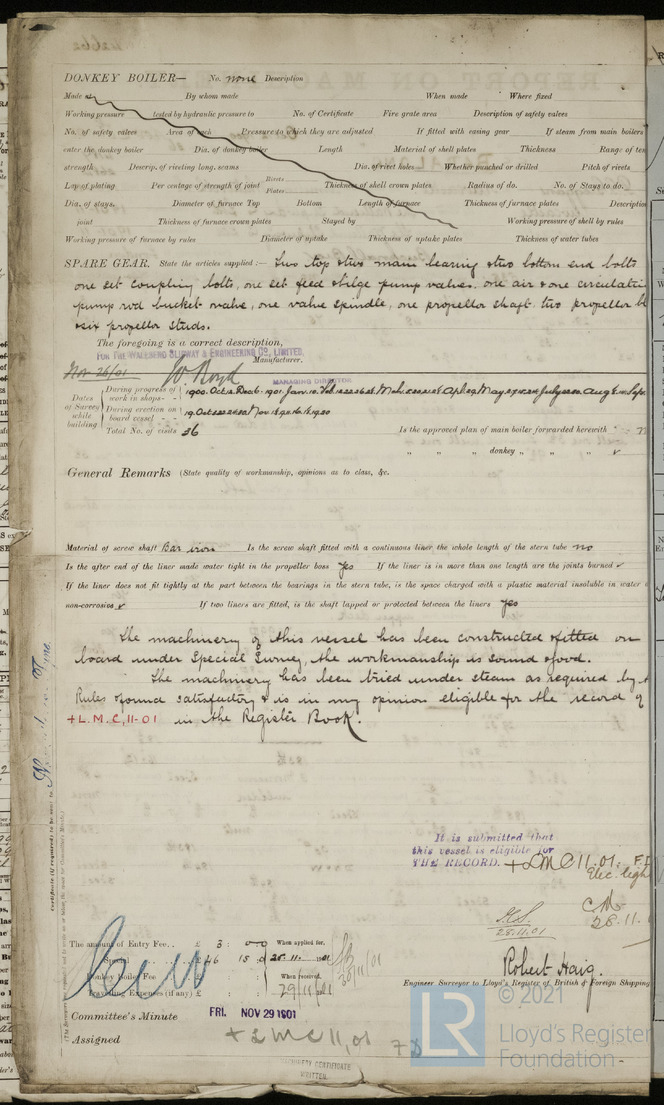 DONKEY BOILER— No. none Description
Made at By whom made When made Where fixed
Working pressure tested by hydraulic pressure to No. of Certificate Fire grate area Description of safety valves
No. of safety valves Area of each Pressure to which they are adjusted If fitted with easing gear If steam from main boilers
enter the donkey boiler Dia. of donkey boiler Length Material of shell plates Thickness Range of ten
strength Descrip. of riveting long. seams Dia. of rivet holes Whether punched or drilled Pitch of rivets
Lap of plating Per centage of strength of joint Rivets Plates Thickness of shell crown plates Radius of do. No. of Stays to do.
Dia. of stays. Diameter of furnace Top Bottom Length of furnace Thickness of furnace plates Description
joint Thickness of furnace crown plates Stayed by Working pressure of shell by rules
Working pressure of furnace by rules Diameter of uptake Thickness of uptake plates Thickness of water tubes
SPARE GEAR. State the articles supplied:— Two top & two main bearing & two bottom end bolts
one set coupling bolts, one set feed & bilge pump valves. one air & one circulatin
pump rod bucket & valve, one valve spindle, one propellor shaft two propellor bl
& six propellor studs.
The foregoing is a correct description,
FOR THE WALLSEND SLIPWAY & ENGINEERING CO., LIMITED,
Manufacturer.
Nov 26/01 W Boyd
MANAGING DIRECTOR
Dates of Survey while building
During progress of work in shops- - 1900. Oct. 2. Dec 6. 1901 Jan. 10. Feb.
During erection on board vessel - - 19. Oct
Total No. of visits 36 Is the approved plan of main boiler forwarded herewith
" " " donkey " " "
General Remarks (State quality of workmanship, opinions as to class, &c.
Material of screw shaft Bar iron Is the screw shaft fitted with a continuous liner the whole length of the stern tube no
Is the after end of the liner made water tight in the propeller boss yes If the liner is in more than one length are the joints burned ✓
If the liner does not fit tightly at the part between the bearings in the stern tube, is the space charged with a plastic material insoluble in water
non-corrosive ✓ If two liners are fitted, is the shaft lapped or protected between the liners yes
The machinery of this vessel has been constructed & fitted on
board under Special Survey, the workmanship is sound & good.
The machinery has been tried under steam as required by
Rules & found satisfactory & is in my opinion eligible for the record of
+L.M.C. 11-01 in the Register Book.
It is submitted that
this vessel is eligible for
THE RECORD. + LMC 11.01.
Elec. light
28.11.
28.11.01
The amount of Entry Fee.. £ 3 : 0 : 0 When applied for,
Special £ 46 15 0 26.11.1901
Donkey Boiler Fee £ When received,
Travelling Expenses (if any) £ 29/11/01
Robert Haig.
Engineer Surveyor to Lloyd's Register of British & Foreign Shipping
Committee's Minute FRI. NOV 29 1901
Assigned + LMC 11,01
MACHINERY CERTIFICATE
WRITTEN.
LR
© 2021
Lloyd's Register
Foundation